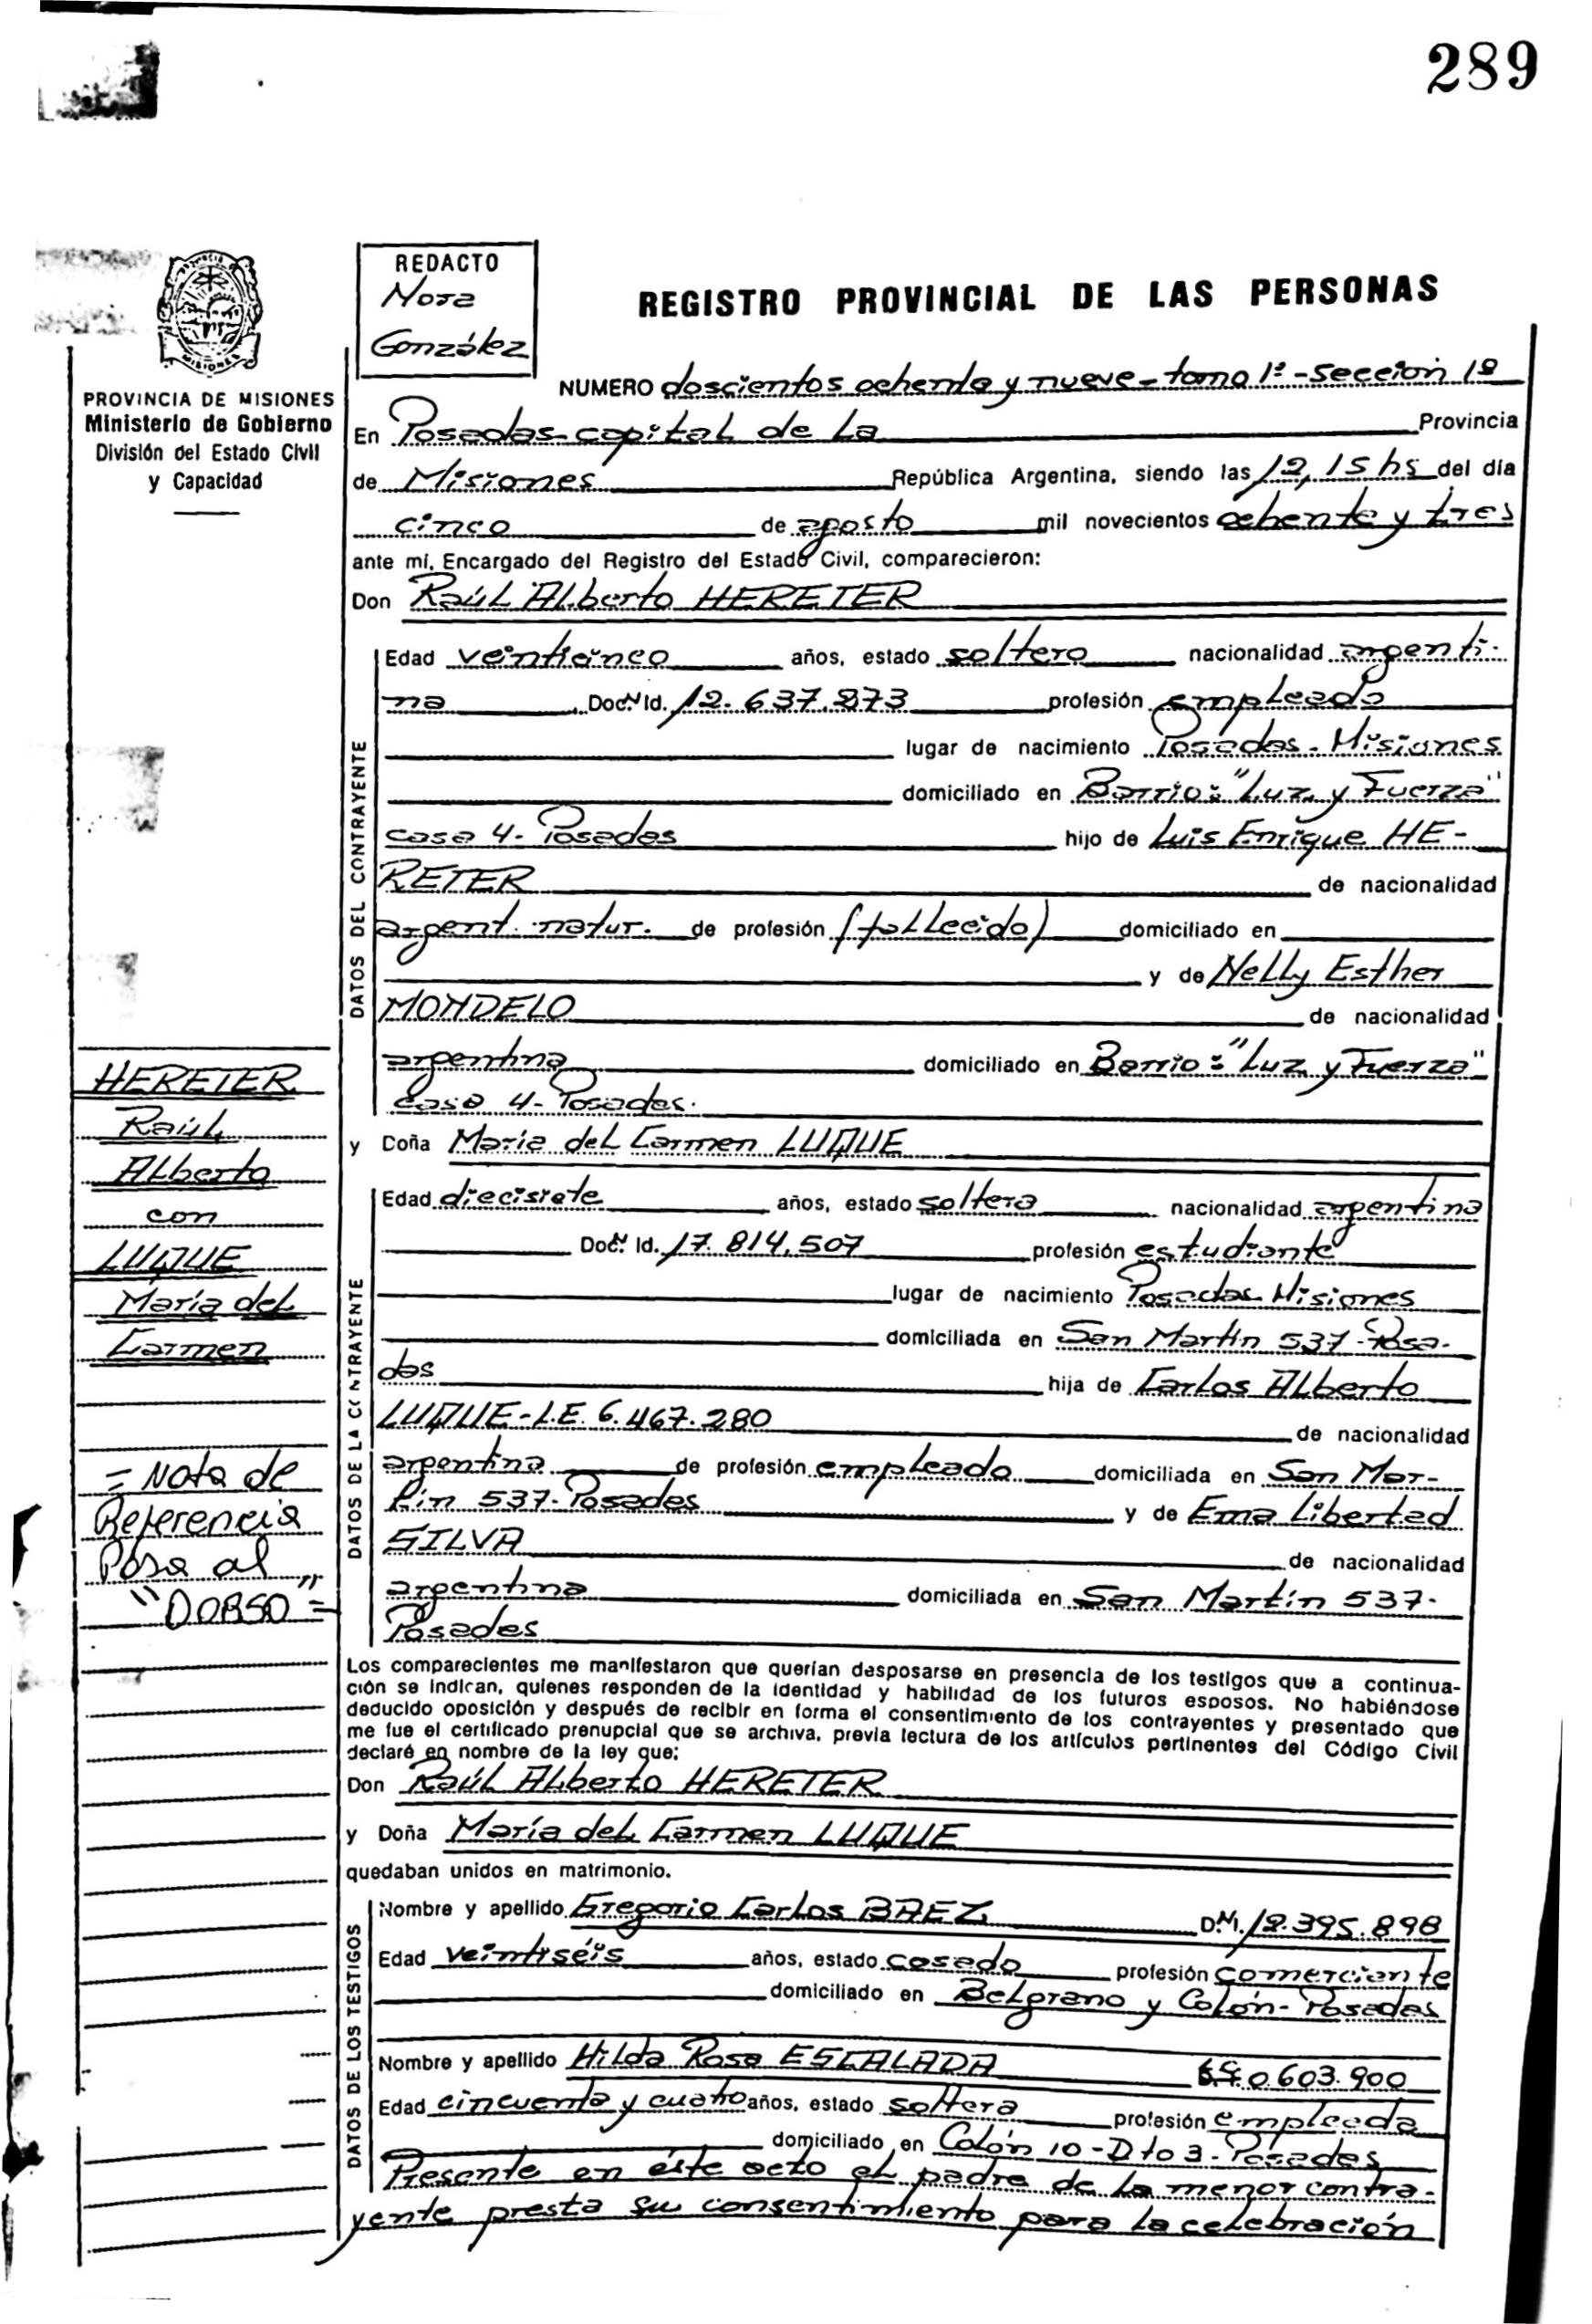 289
REDACTO
Nora
González
REGISTRO PROVINCIAL DE LAS PERSONAS
MISIONES
PROVINCIA DE MISIONES
Ministerio de Gobierno
División del Estado Civil
y Capacidad
NUMERO doscientos ochenta y nueve - tomo 1º - sección 1º
En Posadas - capital de la Provincia
de Misiones República Argentina, siendo las 12,15 hs del día
cinco de agosto mil novecientos ochenta y tres
ante mí, Encargado del Registro del Estado Civil, comparecieron:
Don Raúl Alberto HERETER
DATOS DEL CONTRAYENTE
Edad veinticinco años, estado soltero nacionalidad argenti-
na Doc. N Id. 12.637.873 profesión empleado
lugar de nacimiento Posadas - Misiones
domiciliado en Barrio: "Luz y Fuerza"
casa 4 - Posadas hijo de Luis Enrique HE-
RETER de nacionalidad
argent. natur. de profesión (fallecido) domiciliado en
y de Nelly Esther
MONDELO de nacionalidad
argentina domiciliado en Barrio: "Luz y Fuerza"
casa 4 - Posadas.
y Doña María del Carmen LUQUE
DATOS DE LA CONTRAYENTE
Edad diecisiete años, estado soltera nacionalidad argentina
Doc. Id. 17.814.507 profesión estudiante
lugar de nacimiento Posadas Misiones
domiciliada en San Martín 537 - Posa-
das hija de Carlos Alberto
LUQUE - L.E. 6.467.280 de nacionalidad
argentina de profesión empleado domiciliada en San Mar-
tín 537 - Posadas y de Ema Libertad
SILVA de nacionalidad
argentina domiciliada en San Martín 537 -
Posadas
HERETER
Raúl
Alberto
con
LUQUE
María del
Carmen
= Nota de
Referencia
Pasa al
"DORSO" =
Los comparecientes me manifestaron que querían desposarse en presencia de los testigos que a continua-
ción se indican, quienes responden de la identidad y habilidad de los futuros esposos. No habiéndose
deducido oposición y después de recibir en forma el consentimiento de los contrayentes y presentado que
me fue el certificado prenupcial que se archiva, previa lectura de los artículos pertinentes del Código Civil
declaré en nombre de la ley que:
Don Raúl Alberto HERETER
y Doña María del Carmen LUQUE
quedaban unidos en matrimonio.
DATOS DE LOS TESTIGOS
Nombre y apellido Gregorio Carlos BAEZ D.N.I. 12.395.898
Edad veintiséis años, estado casado profesión comerciante
domiciliado en Belgrano y Colón - Posadas
Nombre y apellido Hilda Rosa ESCALADA 0.603.900
Edad cincuenta y cuatro años, estado soltera profesión empleada
domiciliado en Colón 10 - Dto 3 - Posadas
Presente en éste acto el padre de la menor contra-
yente presta su consentimiento para la celebración